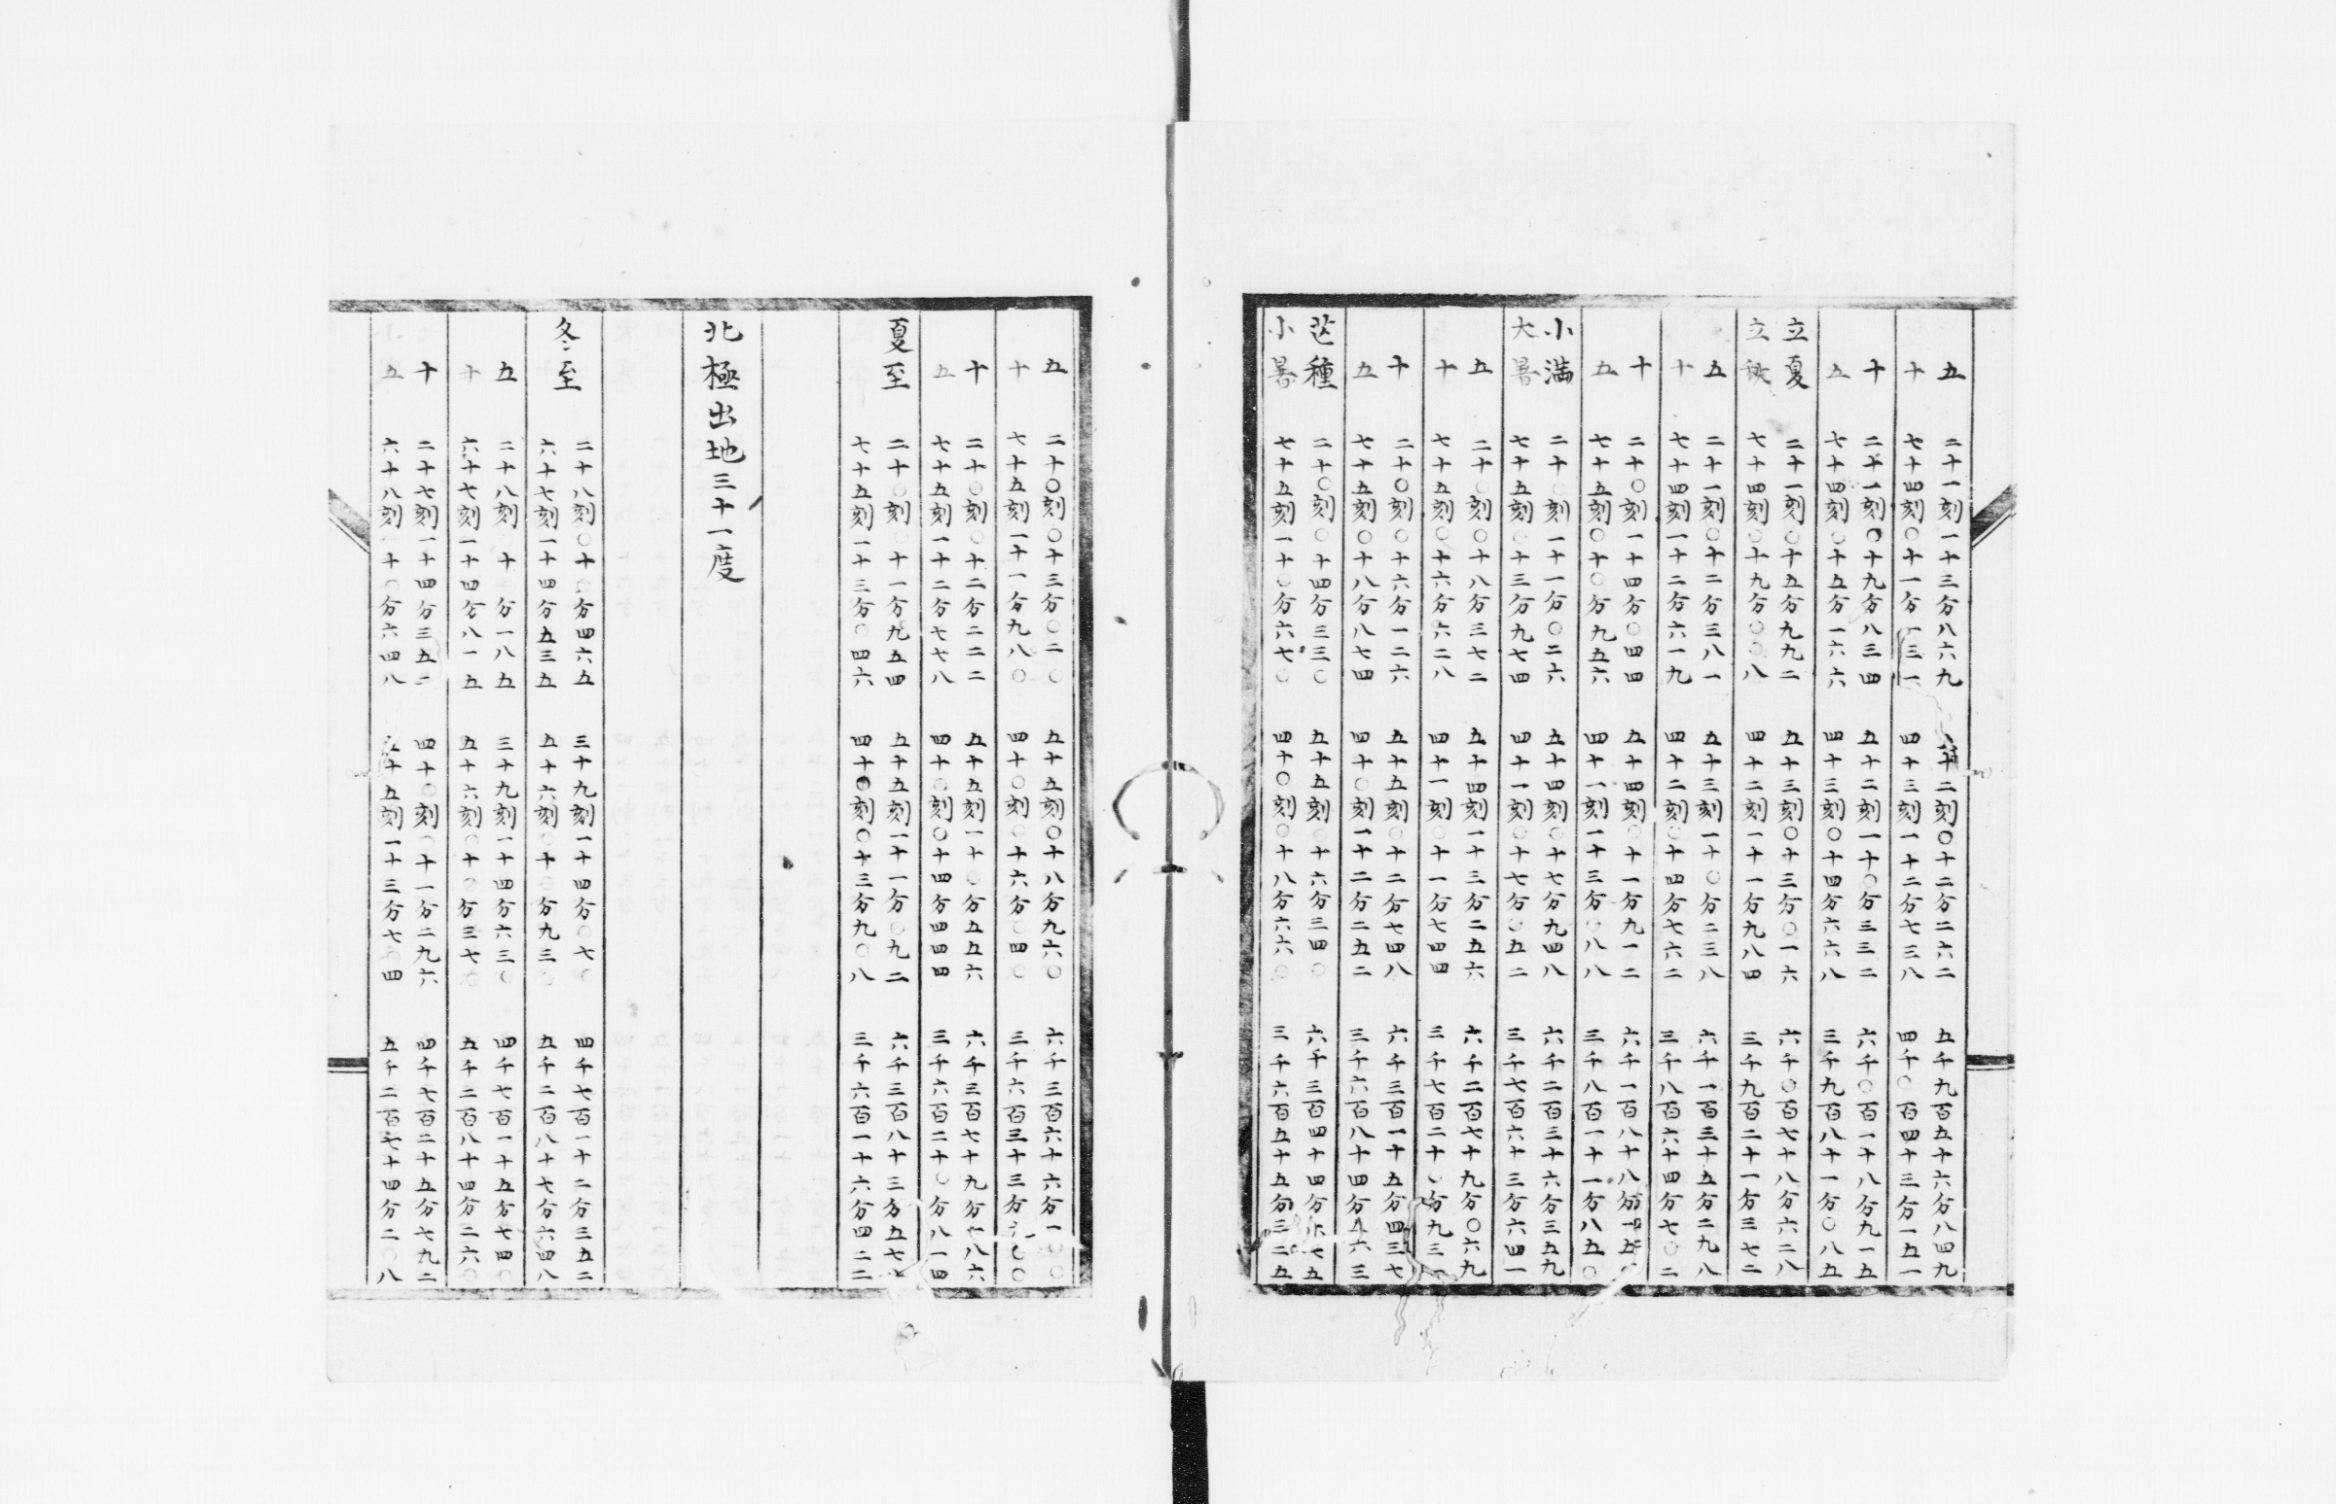 五 二十一刻一十三分八六九 五十二刻〇十二分二六二 五千九百五十六分八四九
十 七十四刻〇十一分一三一 四十三刻一十二分七三八 四千〇百四十三分一五一
十 二十一刻〇十九分八三四 五十二刻一十〇分三三二 六千〇百一十八分九一五
五 七十四刻〇十五分一六六 四十三刻〇十四分六六八 三千九百八十一分〇八五
立夏 二十一刻〇十五分九九二 五十三刻〇十三分〇一六 六千〇百七十八分六二八
立秋 七十四刻〇十九分〇〇八 四十二刻一十一分九八四 三千九百二十一分三七二
五 二十一刻〇十二分三八一 五十三刻一十〇分二三八 六千一百三十五分二九八
十 七十四刻一十二分六一九 四十二刻〇十四分七六二 三千八百六十四分七〇二
十 二十〇刻一十四分〇四四 五十四刻〇十一分九一二 六千一百八十八分一五
五 七十五刻〇十〇分九五六 四十一刻一十三分〇八八 三千八百一十一分八五〇
小滿 二十〇刻一十一分〇二六 五十四刻〇十七分九四八 六千二百三十六分三五九
大暑 七十五刻〇十三分九七四 四十一刻〇十七分〇五二 三千七百六十三分六四一
五 二十〇刻〇十八分三七二 五十四刻一十三分二五六 六千二百七十九分〇六九
十 七十五刻〇十六分六二八 四十一刻〇十一分七四四 三千七百二十〇分九三一
十 二十〇刻〇十六分一二六 五十五刻〇十二分七四八 六千三百一十五分四三七
五 七十五刻〇十八分八七四 四十〇刻一十二分二五二 三千六百八十四分五六三
芒種 二十〇刻〇十四分三三〇 五十五刻〇十六分三四〇 六千三百四十四分六七五
小暑 七十五刻一十〇分六七〇 四十〇刻〇十八分六六〇 三千六百五十五分三二五
五 二十〇刻〇十三分〇二〇 五十五刻〇十八分九六〇 六千三百六十六分一〇〇
十 七十五刻一十一分九八〇 四十〇刻〇十六分〇四〇 三千六百三十三分〇〇
十 二十〇刻〇十二分二二二 五十五刻一十〇分五五六 六千三百七十九分一八六
五 七十五刻一十二分七七八 四十〇刻〇十四分四四四 三千六百二十〇分八一四
夏至 二十〇刻〇十一分九五四 五十五刻一十一分〇九二 六千三百八十三分五七
七十五刻一十三分〇四六 四十〇刻〇十三分九〇八 三千六百一十六分四二二
北極出地三十一度
冬至 二十八刻〇十〇分四六五 三十九刻一十四分〇七〇 四千七百一十二分三五二
六十七刻一十四分五三五 五十六刻〇十〇分九三〇 五千二百八十七分六四八
五 二十八刻〇十〇分一八五 三十九刻一十四分六三〇 四千七百一十五分七四〇
十 六十七刻一十四分八一五 五十六刻〇十〇分三七〇 五千二百八十四分二六〇
十 二十七刻一十四分三五二 四十〇刻〇十一分二九六 四千七百二十五分七九二
五 六十八刻〇十〇分六四八 五十五刻一十三分七〇四 五千二百七十四分二〇八